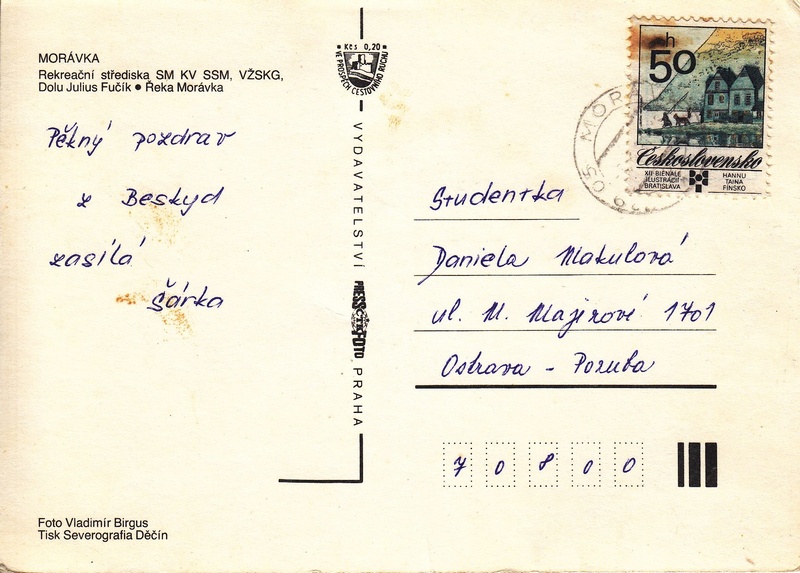 MORÁVKA
Rekreační střediska SM KV SSM, VŽSKG,
Dolu Julius Fučík ● Řeka Morávka
Pěkný pozdrav
z Beskyd
zasílá
Šárka
Foto Vladimír Birgus
Tisk Severografia Děčín
Kčs 0,20
VE PROSPĚCH CESTOVNÍHO RUCHU
VYDAVATELSTVÍ
PRESSFOTO
PRAHA
50 h
Československo
XII BIENÁLE
ILUSTRÁCIÍ
BRATISLAVA
HANNU
TAINA
FÍNSKO
Studentka
Daniela Makulová
ul. M. Majerové 1701
Ostrava - Poruba
70800